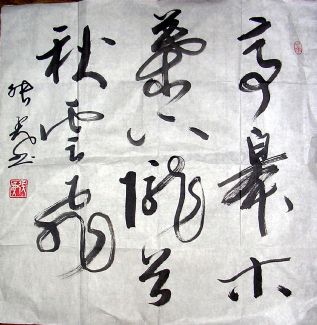 亭皋木
葉下隴首
秋雲飛